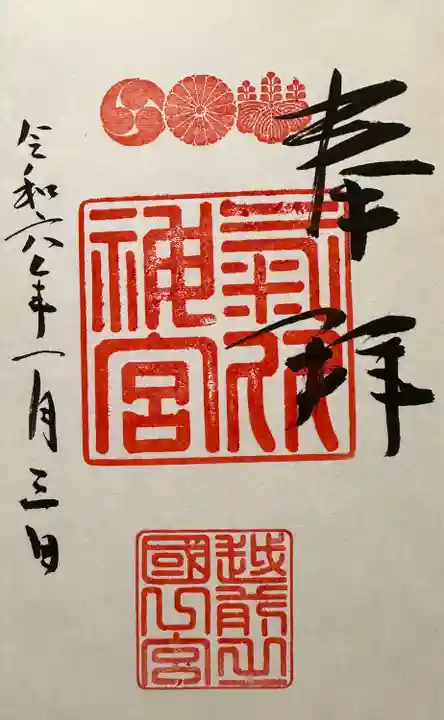 奉拝
氣比
神宮
越前之
國一宮
令和六年一月三日